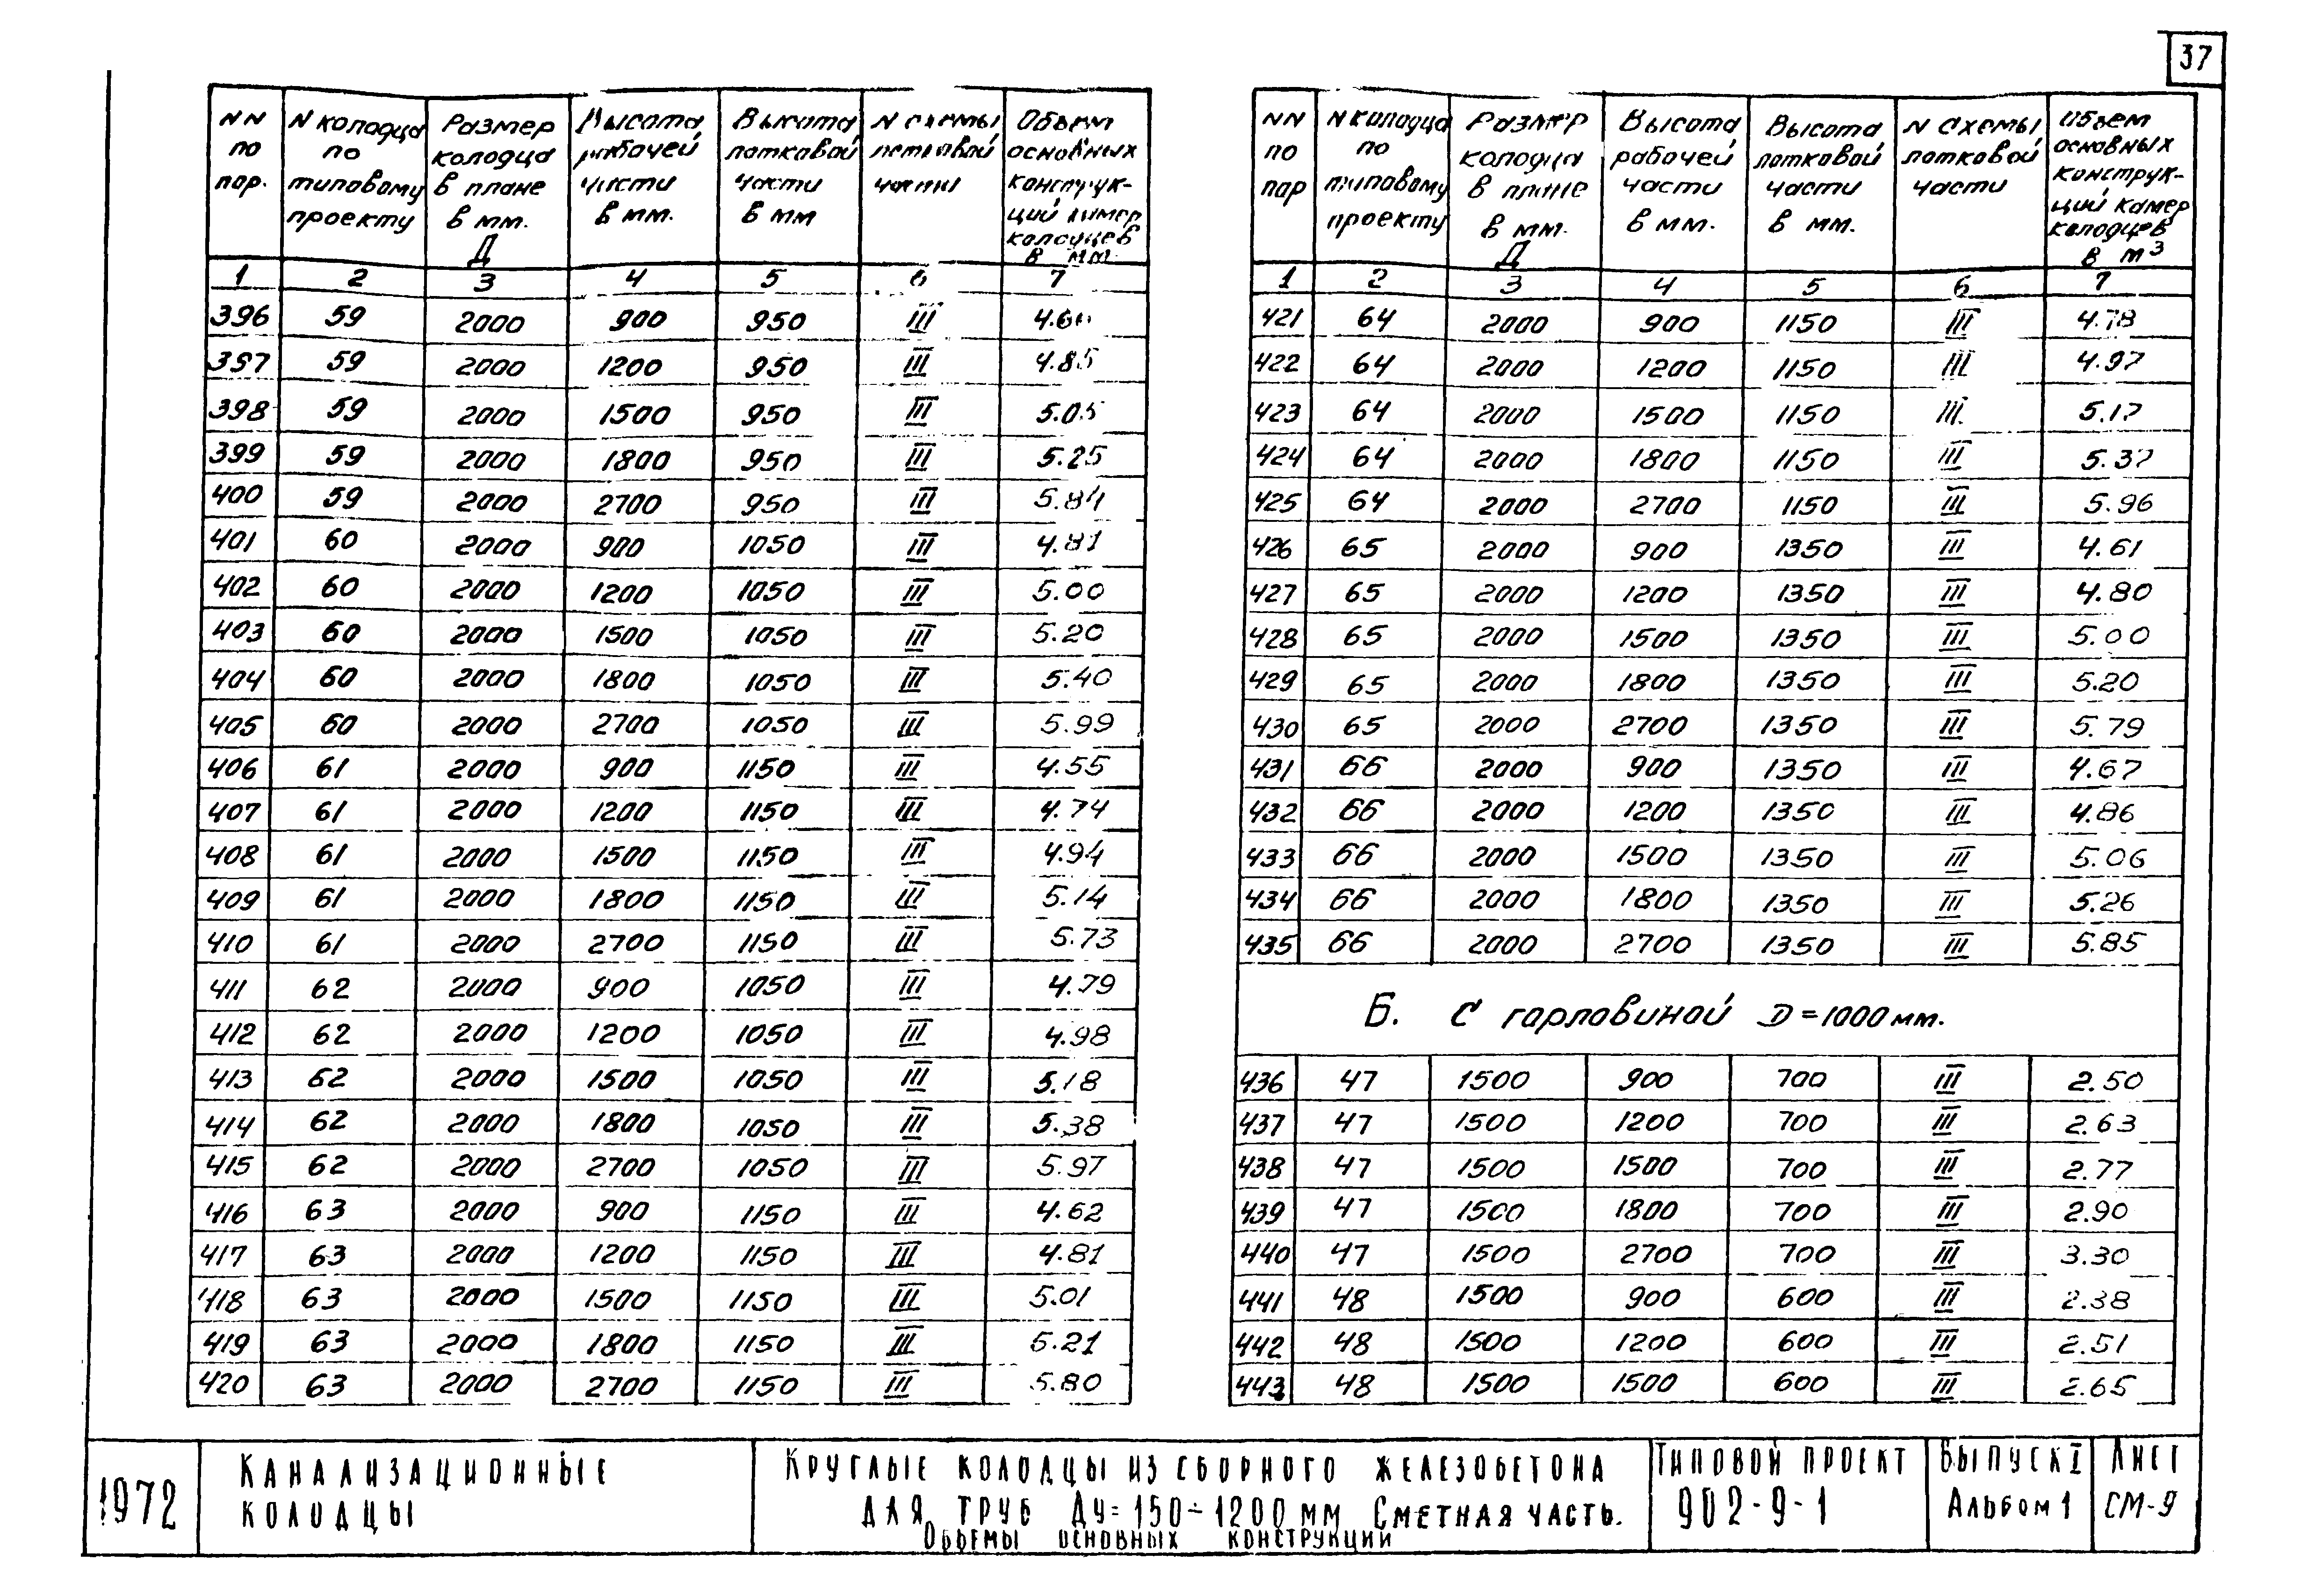 37
NN по пор. | N колодца по типовому проекту | Размер колодца в плане в мм. Д | Высота рабочей части в мм. | Высота лотковой части в мм | N схемы лотковой части | Объем основных конструк-ций камер колодцев в мм
1 2 3 4 5 6 7
396 59 2000 900 950 III 4.60
397 59 2000 1200 950 III 4.85
398 59 2000 1500 950 III 5.05
399 59 2000 1800 950 III 5.25
400 59 2000 2700 950 III 5.84
401 60 2000 900 1050 III 4.81
402 60 2000 1200 1050 III 5.00
403 60 2000 1500 1050 III 5.20
404 60 2000 1800 1050 III 5.40
405 60 2000 2700 1050 III 5.99
406 61 2000 900 1150 III 4.55
407 61 2000 1200 1150 III 4.74
408 61 2000 1500 1150 III 4.94
409 61 2000 1800 1150 III 5.14
410 61 2000 2700 1150 III 5.73
411 62 2000 900 1050 III 4.79
412 62 2000 1200 1050 III 4.98
413 62 2000 1500 1050 III 5.18
414 62 2000 1800 1050 III 5.38
415 62 2000 2700 1050 III 5.97
416 63 2000 900 1150 III 4.62
417 63 2000 1200 1150 III 4.81
418 63 2000 1500 1150 III 5.01
419 63 2000 1800 1150 III 5.21
420 63 2000 2700 1150 III 5.80
NN по пор | N колодца по типовому проекту | Размер колодца в плане в мм. Д | Высота рабочей части в мм. | Высота лотковой части в мм. | N схемы лотковой части | Объем основных конструк-ций камер колодцев в м³
1 2 3 4 5 6 7
421 64 2000 900 1150 III 4.78
422 64 2000 1200 1150 III 4.97
423 64 2000 1500 1150 III. 5.17
424 64 2000 1800 1150 III 5.37
425 64 2000 2700 1150 III 5.96
426 65 2000 900 1350 III 4.61
427 65 2000 1200 1350 III 4.80
428 65 2000 1500 1350 III 5.00
429 65 2000 1800 1350 III 5.20
430 65 2000 2700 1350 III 5.79
431 66 2000 900 1350 III 4.67
432 66 2000 1200 1350 III 4.86
433 66 2000 1500 1350 III 5.06
434 66 2000 1800 1350 III 5.26
435 66 2000 2700 1350 III 5.85
Б. С горловиной D=1000 мм.
436 47 1500 900 700 III 2.50
437 47 1500 1200 700 III 2.63
438 47 1500 1500 700 III 2.77
439 47 1500 1800 700 III 2.90
440 47 1500 2700 700 III 3.30
441 48 1500 900 600 III 2.38
442 48 1500 1200 600 III 2.51
443 48 1500 1500 600 III 2.65
1972
Канализационные
колодцы
Круглые колодцы из сборного железобетона
для труб Ду=150÷1200 мм Сметная часть.
Объемы основных конструкции
Типовой проект
902-9-1
Выпуск I
Альбом 1
Лист
СМ-9